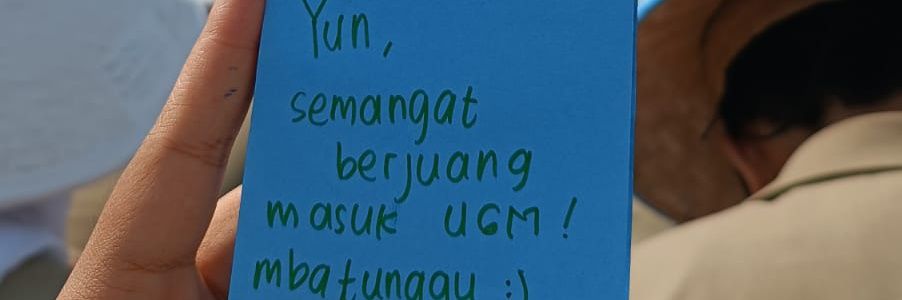 Yun,
semangat
berjuang
masuk UGM!
mba tunggu :)